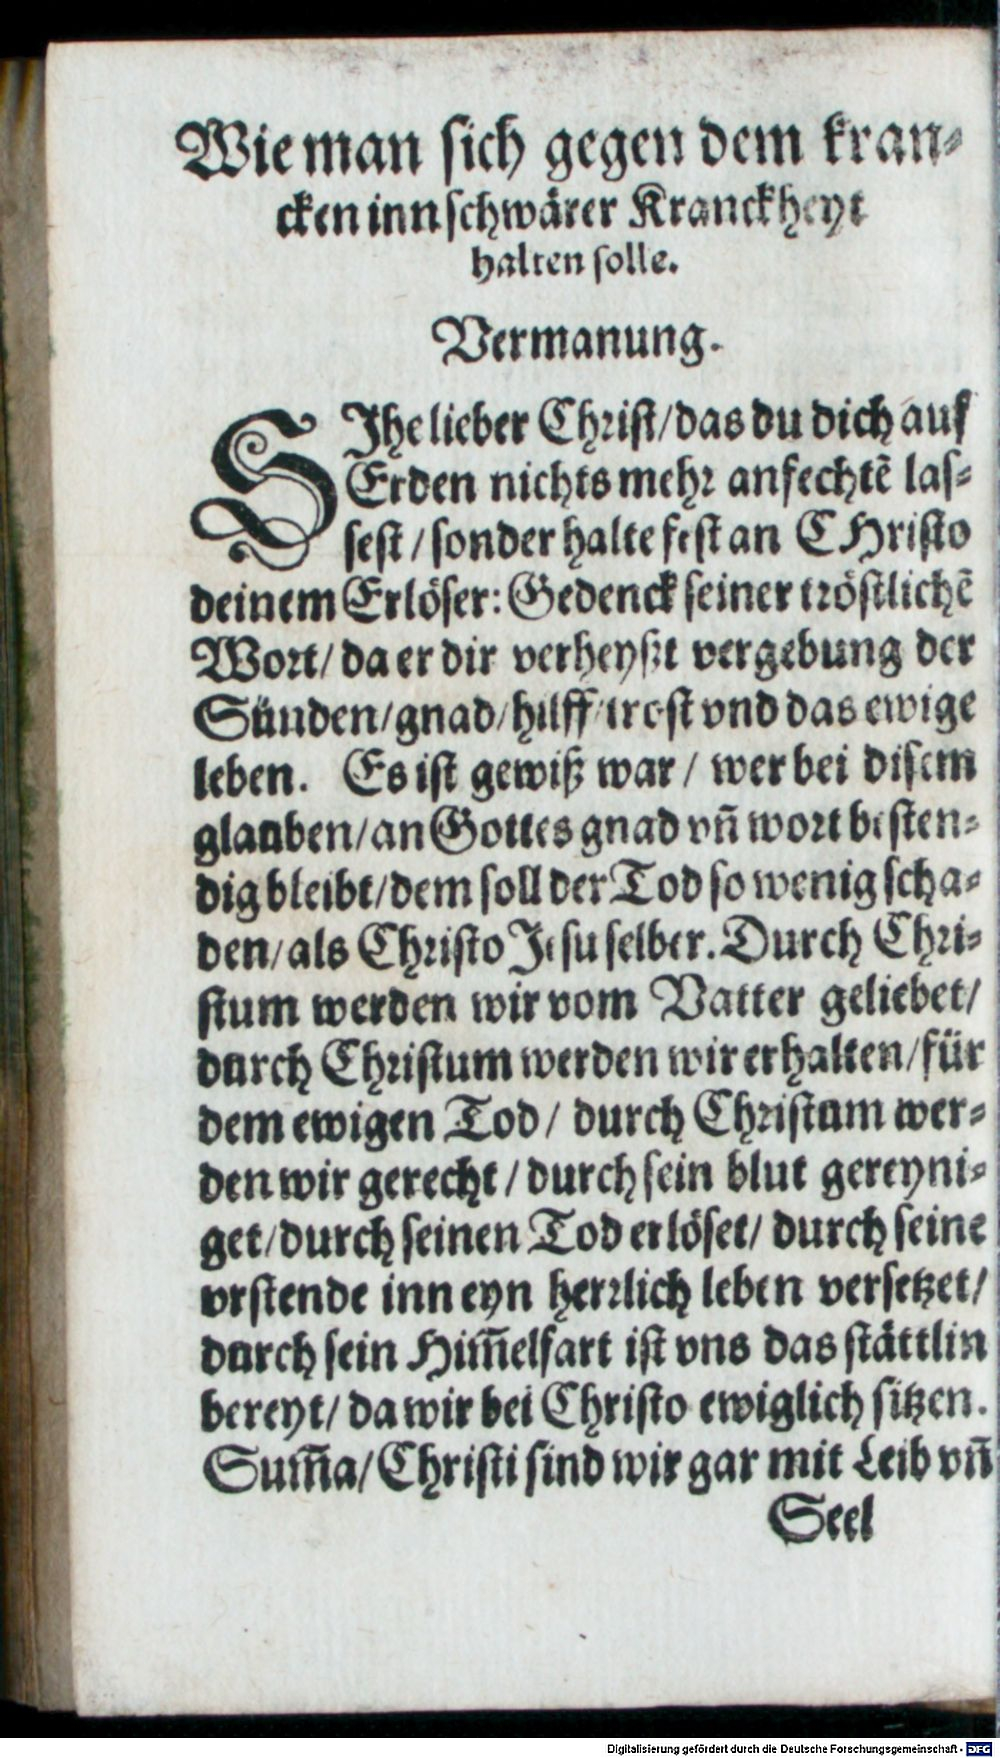 Wie man sich gegen dem kran-
cken inn schwärer Kranckheyt
halten solle.
Vermanung.
SIhe lieber Christ/das du dich auf
Erden nichts mehr anfechtē las-
sest/sonder halte fest an CHristo
deinem Erlöser: Gedenck seiner tröstlichē
Wort/da er dir verheyßt vergebung der
Sünden/gnad/hilff/trost vnd das ewige
leben. Es ist gewiß war/wer bei disem
glauben/an Gottes gnad vñ wort besten-
dig bleibt/dem soll der Tod so wenig scha-
den/als Christo Jesu selber. Durch Chri-
stum werden wir vom Vatter geliebet/
durch Christum werden wir erhalten/für
dem ewigen Tod/durch Christum wer-
den wir gerecht/durch sein blut gereyni-
get/durch seinen Tod erlöset/durch seine
vrstende inn eyn herrlich leben versetzet/
durch sein Him̄elfart ist vns das stättlin
bereyt/da wir bei Christo ewiglich sitzen.
Sum̄a/Christi sind wir gar mit Leib vñ
Seel
Digitalisierung gefördert durch die Deutsche Forschungsgemeinschaft - DFG